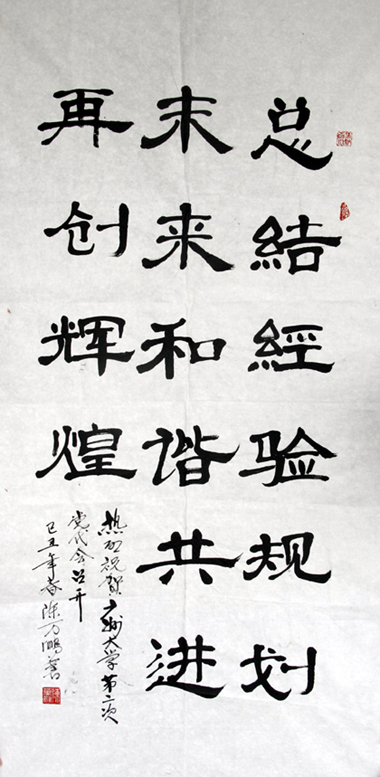 总結經验规划
末来和谐共进
再创辉煌
热烈祝贺广州大学第二次
党代会召开
己丑年春陈万鹏书